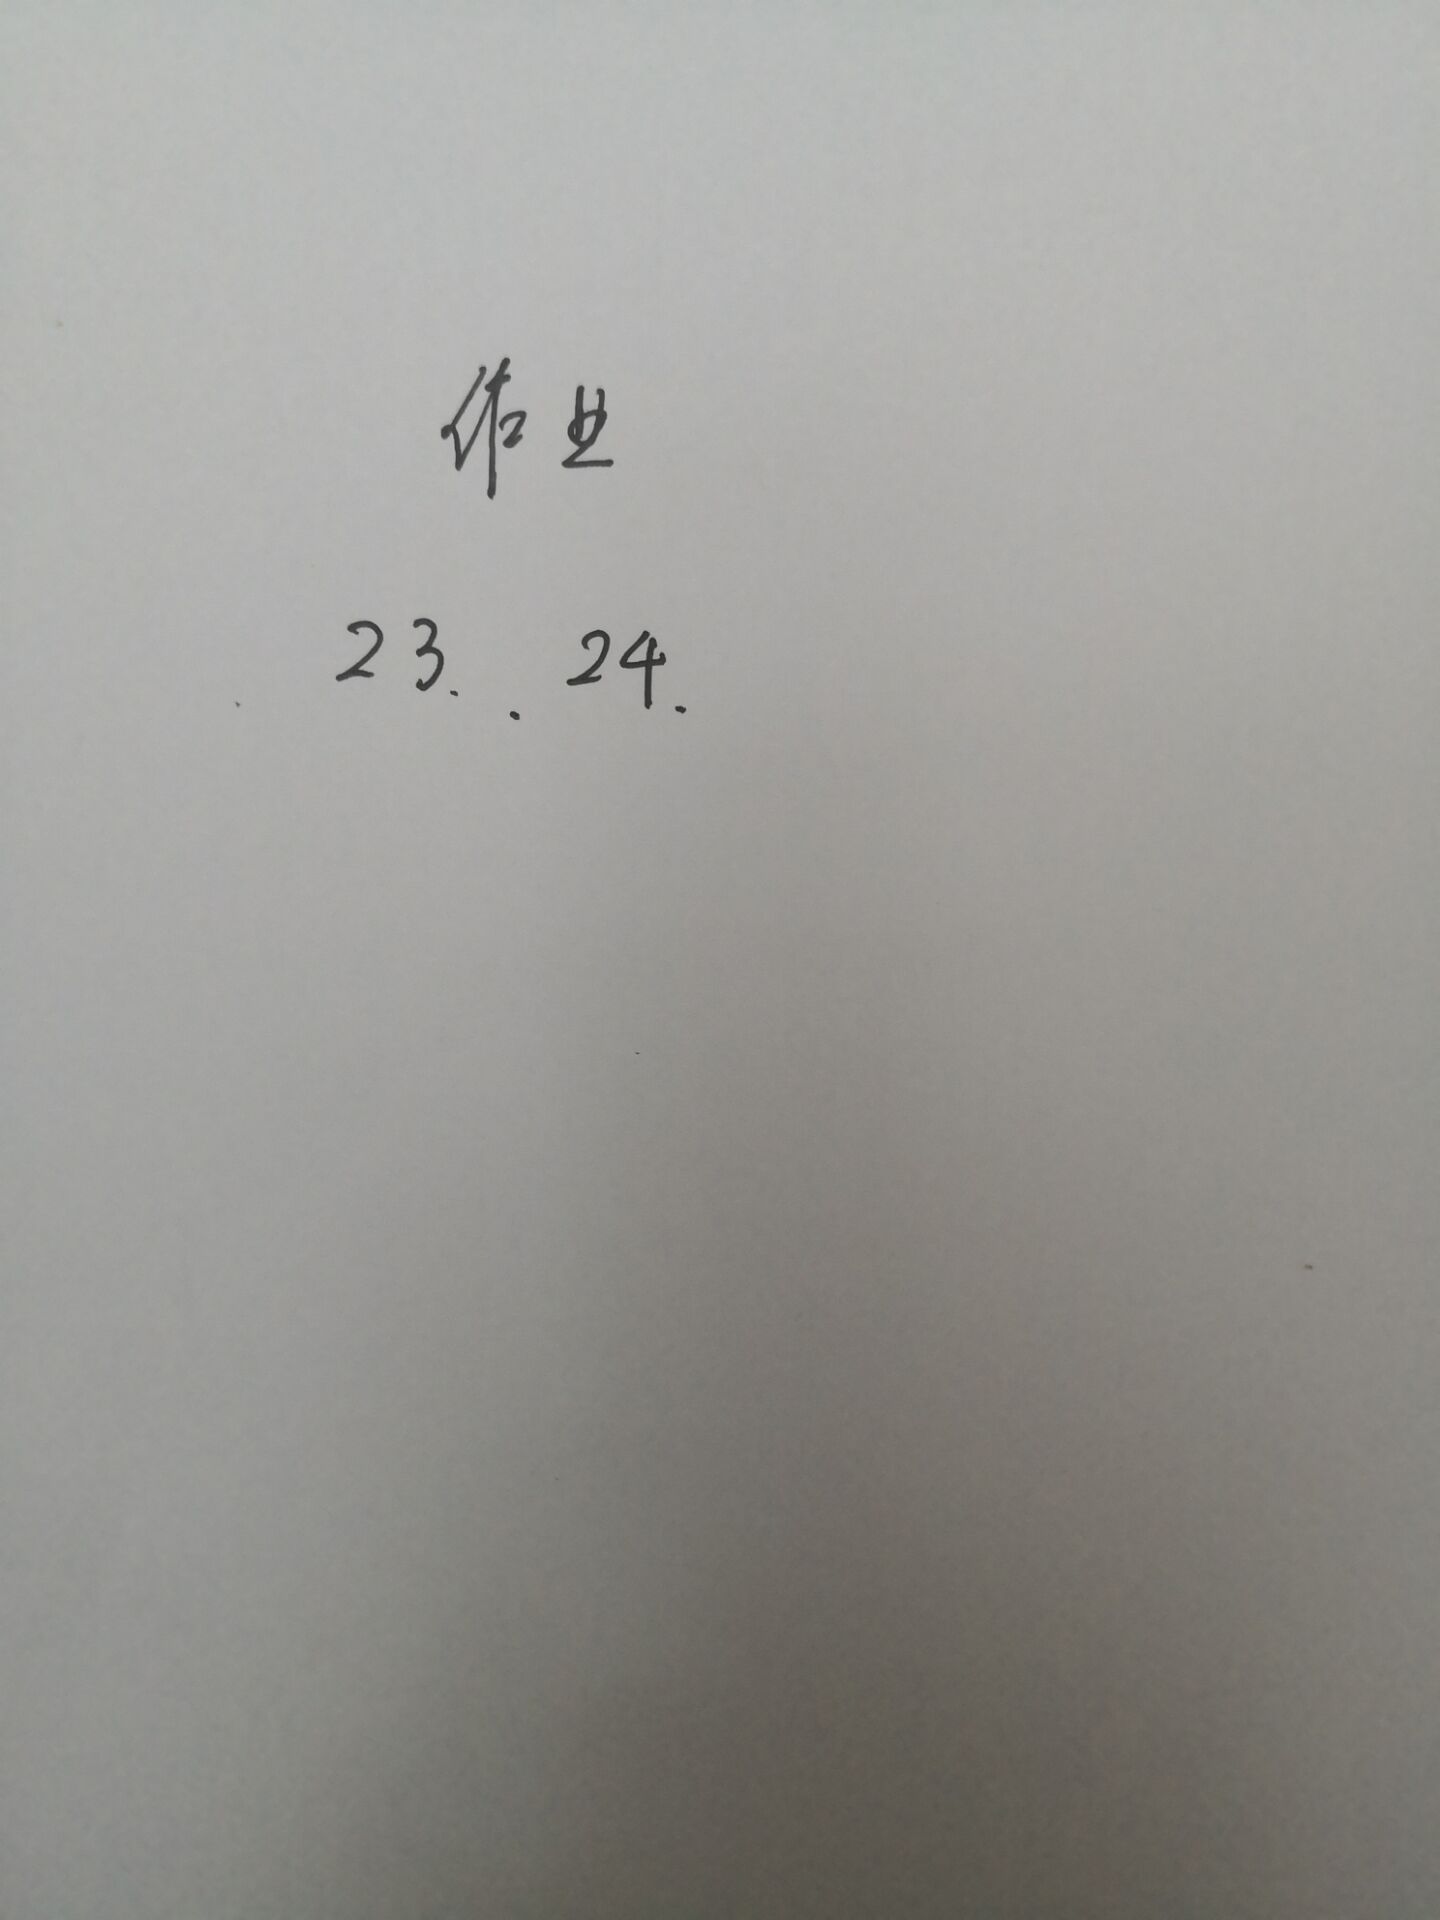 作业
23. . 24.